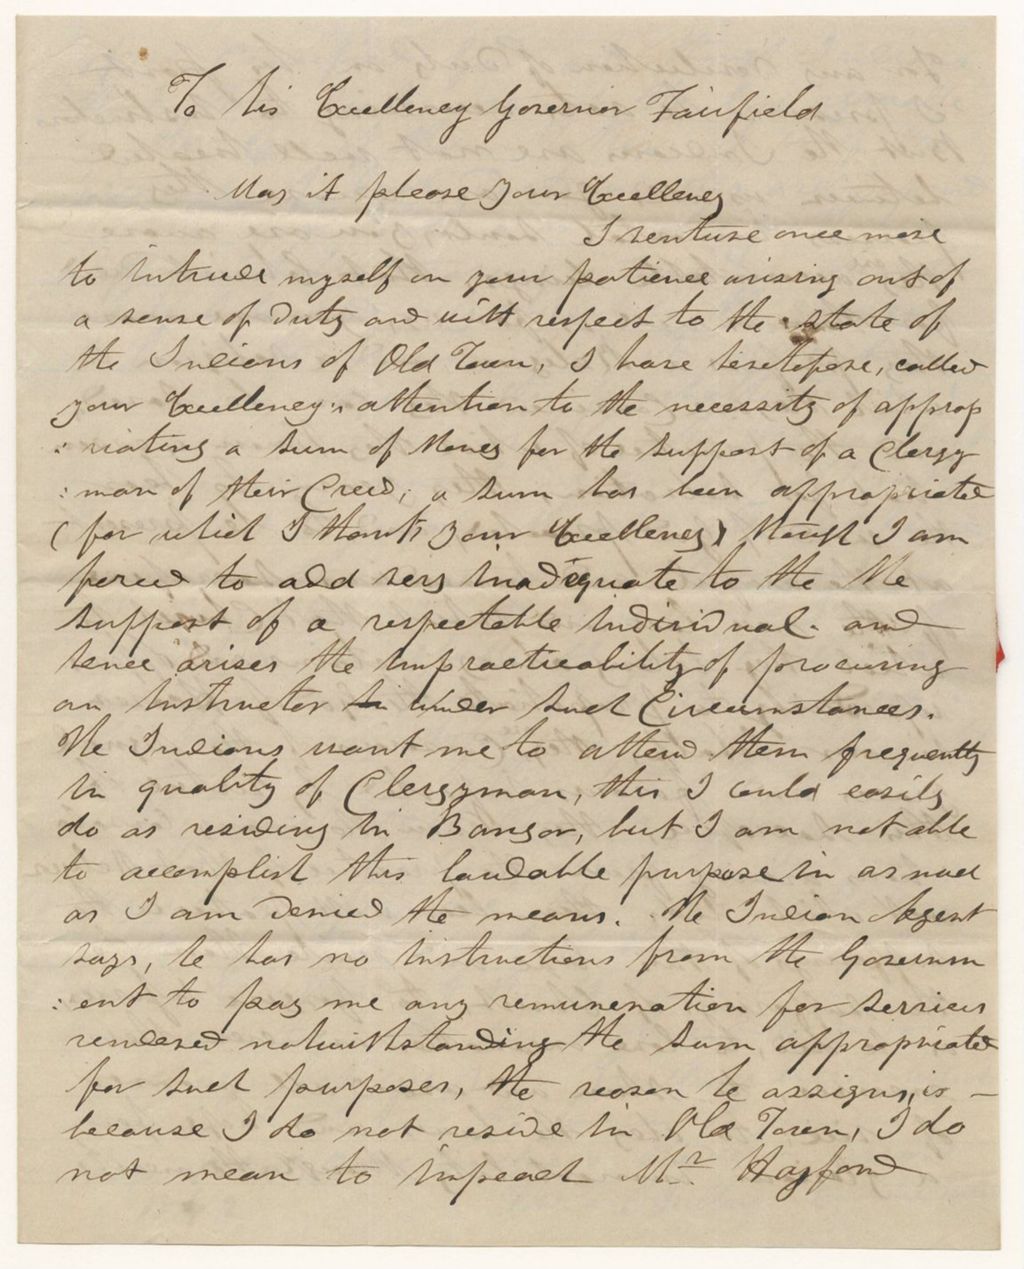 To his Excellency Governor Fairfield
May it please your Excellency
I venture once more
to intrude myself on your patience arising out of
a sense of Duty and with respect to the state of
the Indians of Old Town, I have heretofore, called
your Excellency's attention to the necessity of approp
:riating a sum of Money for the support of a Clergy
:man of their Creed; a sum has been appropriated
(for which I thank your Excellency) though I am
forced to add very inadequate to the the
support of a respectable individual. and
hence arises the impracticability of procuring
an instructor in under such Circumstances.
The Indians want me to attend them frequently
in quality of Clergyman, this I could easily
do as residing in Bangor, but I am not able
to accomplish this laudable purpose in as much
as I am denied the means. The Indian Agent
says, he has no instructions from the Governm
:ent to pay me any remuneration for services
rendered notwithstanding the sum appropriated
for such purposes, the reason he assigns, is –
because I do not reside in Old Town, I do
not mean to impeach Mr. Hayford